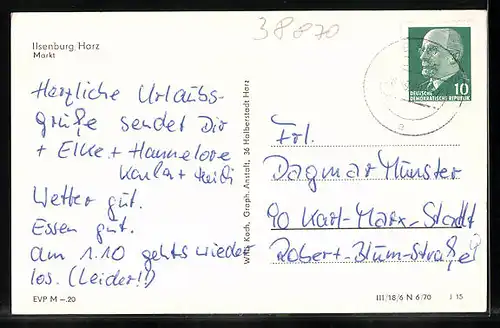 38870
Ilsenburg Harz
Markt
Herzliche Urlaubs-
grüße sendet Dir
+ Elke + Hannelore
Karla + Heidi
Wetter gut.
Essen gut.
am 1.10 gehts wieder
los. (Leider!!)
EVP M –.20
Willy Koch, Graph. Anstalt, 36 Halberstadt Harz
10
DEUTSCHE
DEMOKRATISCHE REPUBLIK
a
Frl.
Dagmar Münster
90 Karl-Marx-Stadt
Robert-Blum-Straße 9
III/18/6 N 6/70 J 15